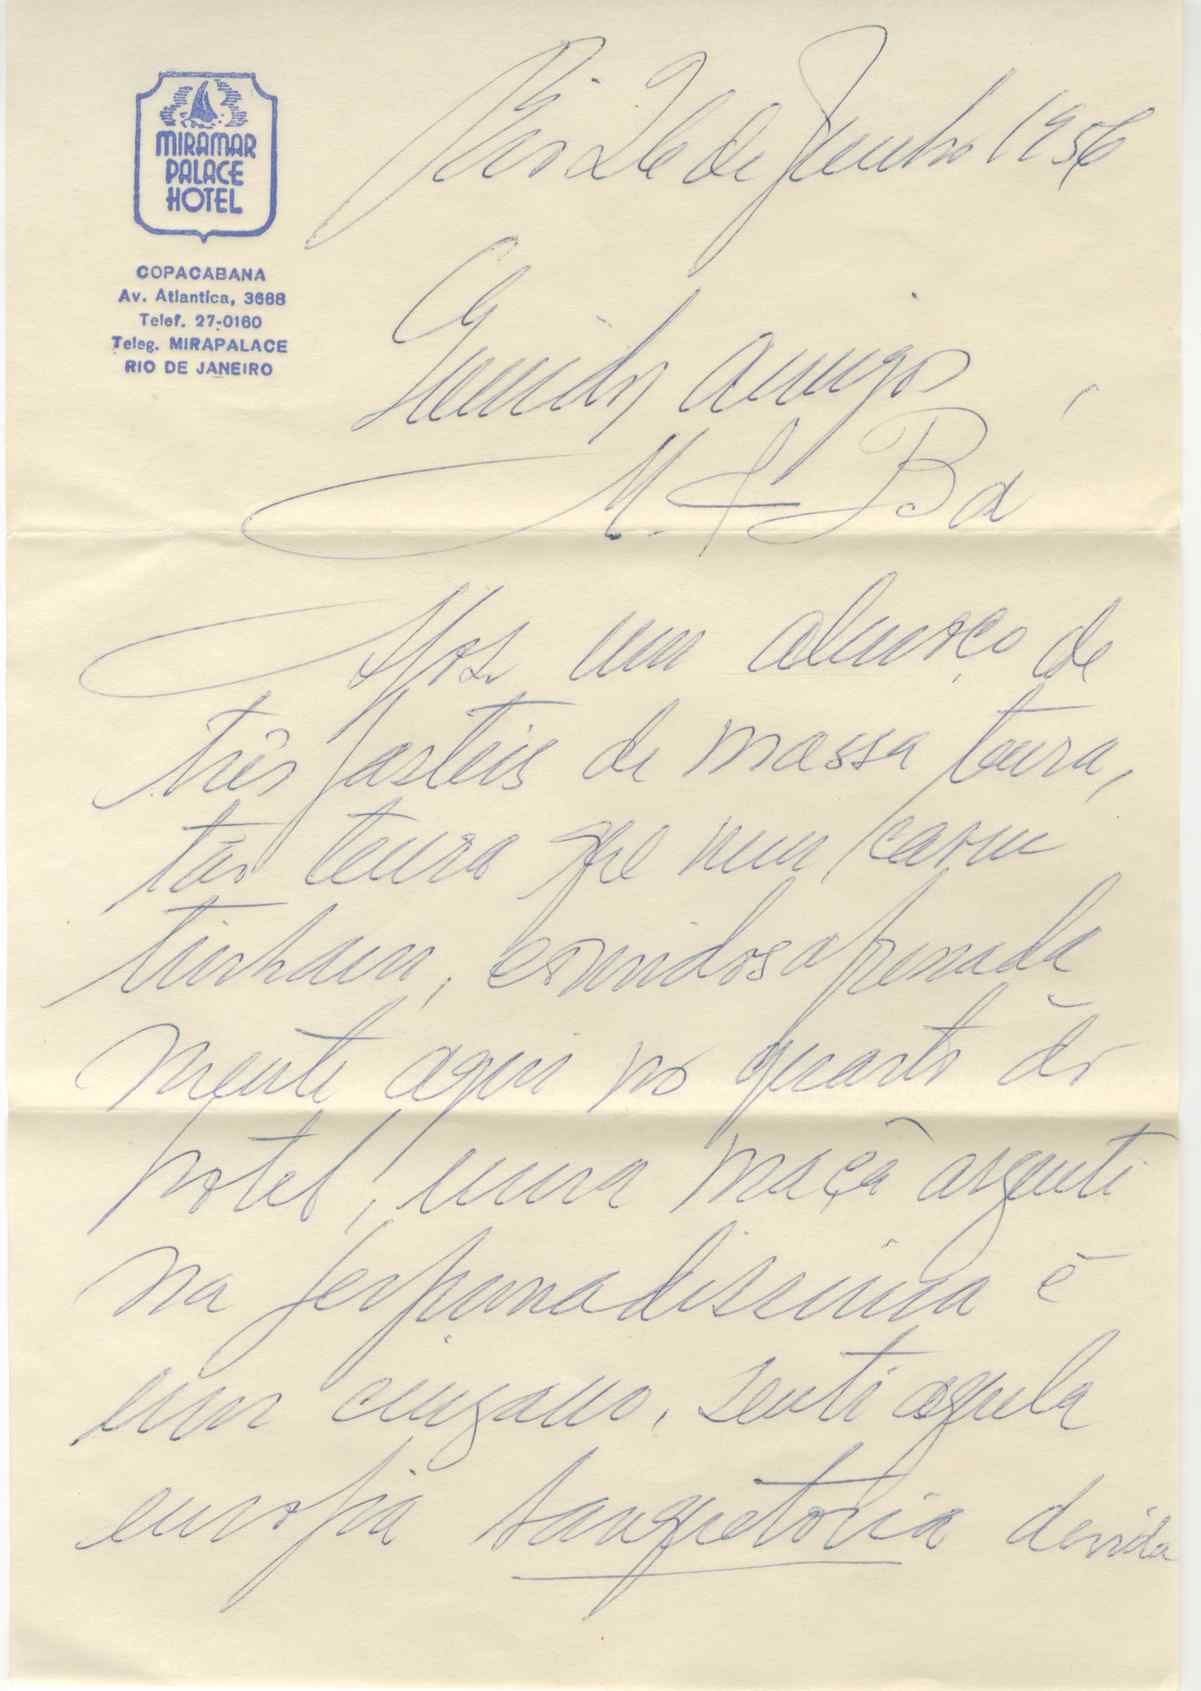 MIRAMAR
PALACE
HOTEL
COPACABANA
Av. Atlantica, 3668
Telef. 27-0160
Teleg. MIRAPALACE
RIO DE JANEIRO
Rio 26 de Junho 1956
Queridos amigos,
M. & Bá
Apos um almoço de
três pasteis de massa tenra,
tão tenra que nem carne
tinham, comidos apressada
mente aqui no quarto do
hotel, uma maçã argenti
na perfumadissima e
um cigano, senti aquela
euforia devida